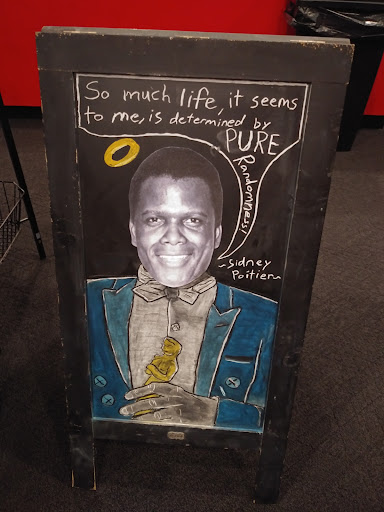 So much life, it seems
to me, is determined by
PURE
Randomness!
~Sidney
Poitier~